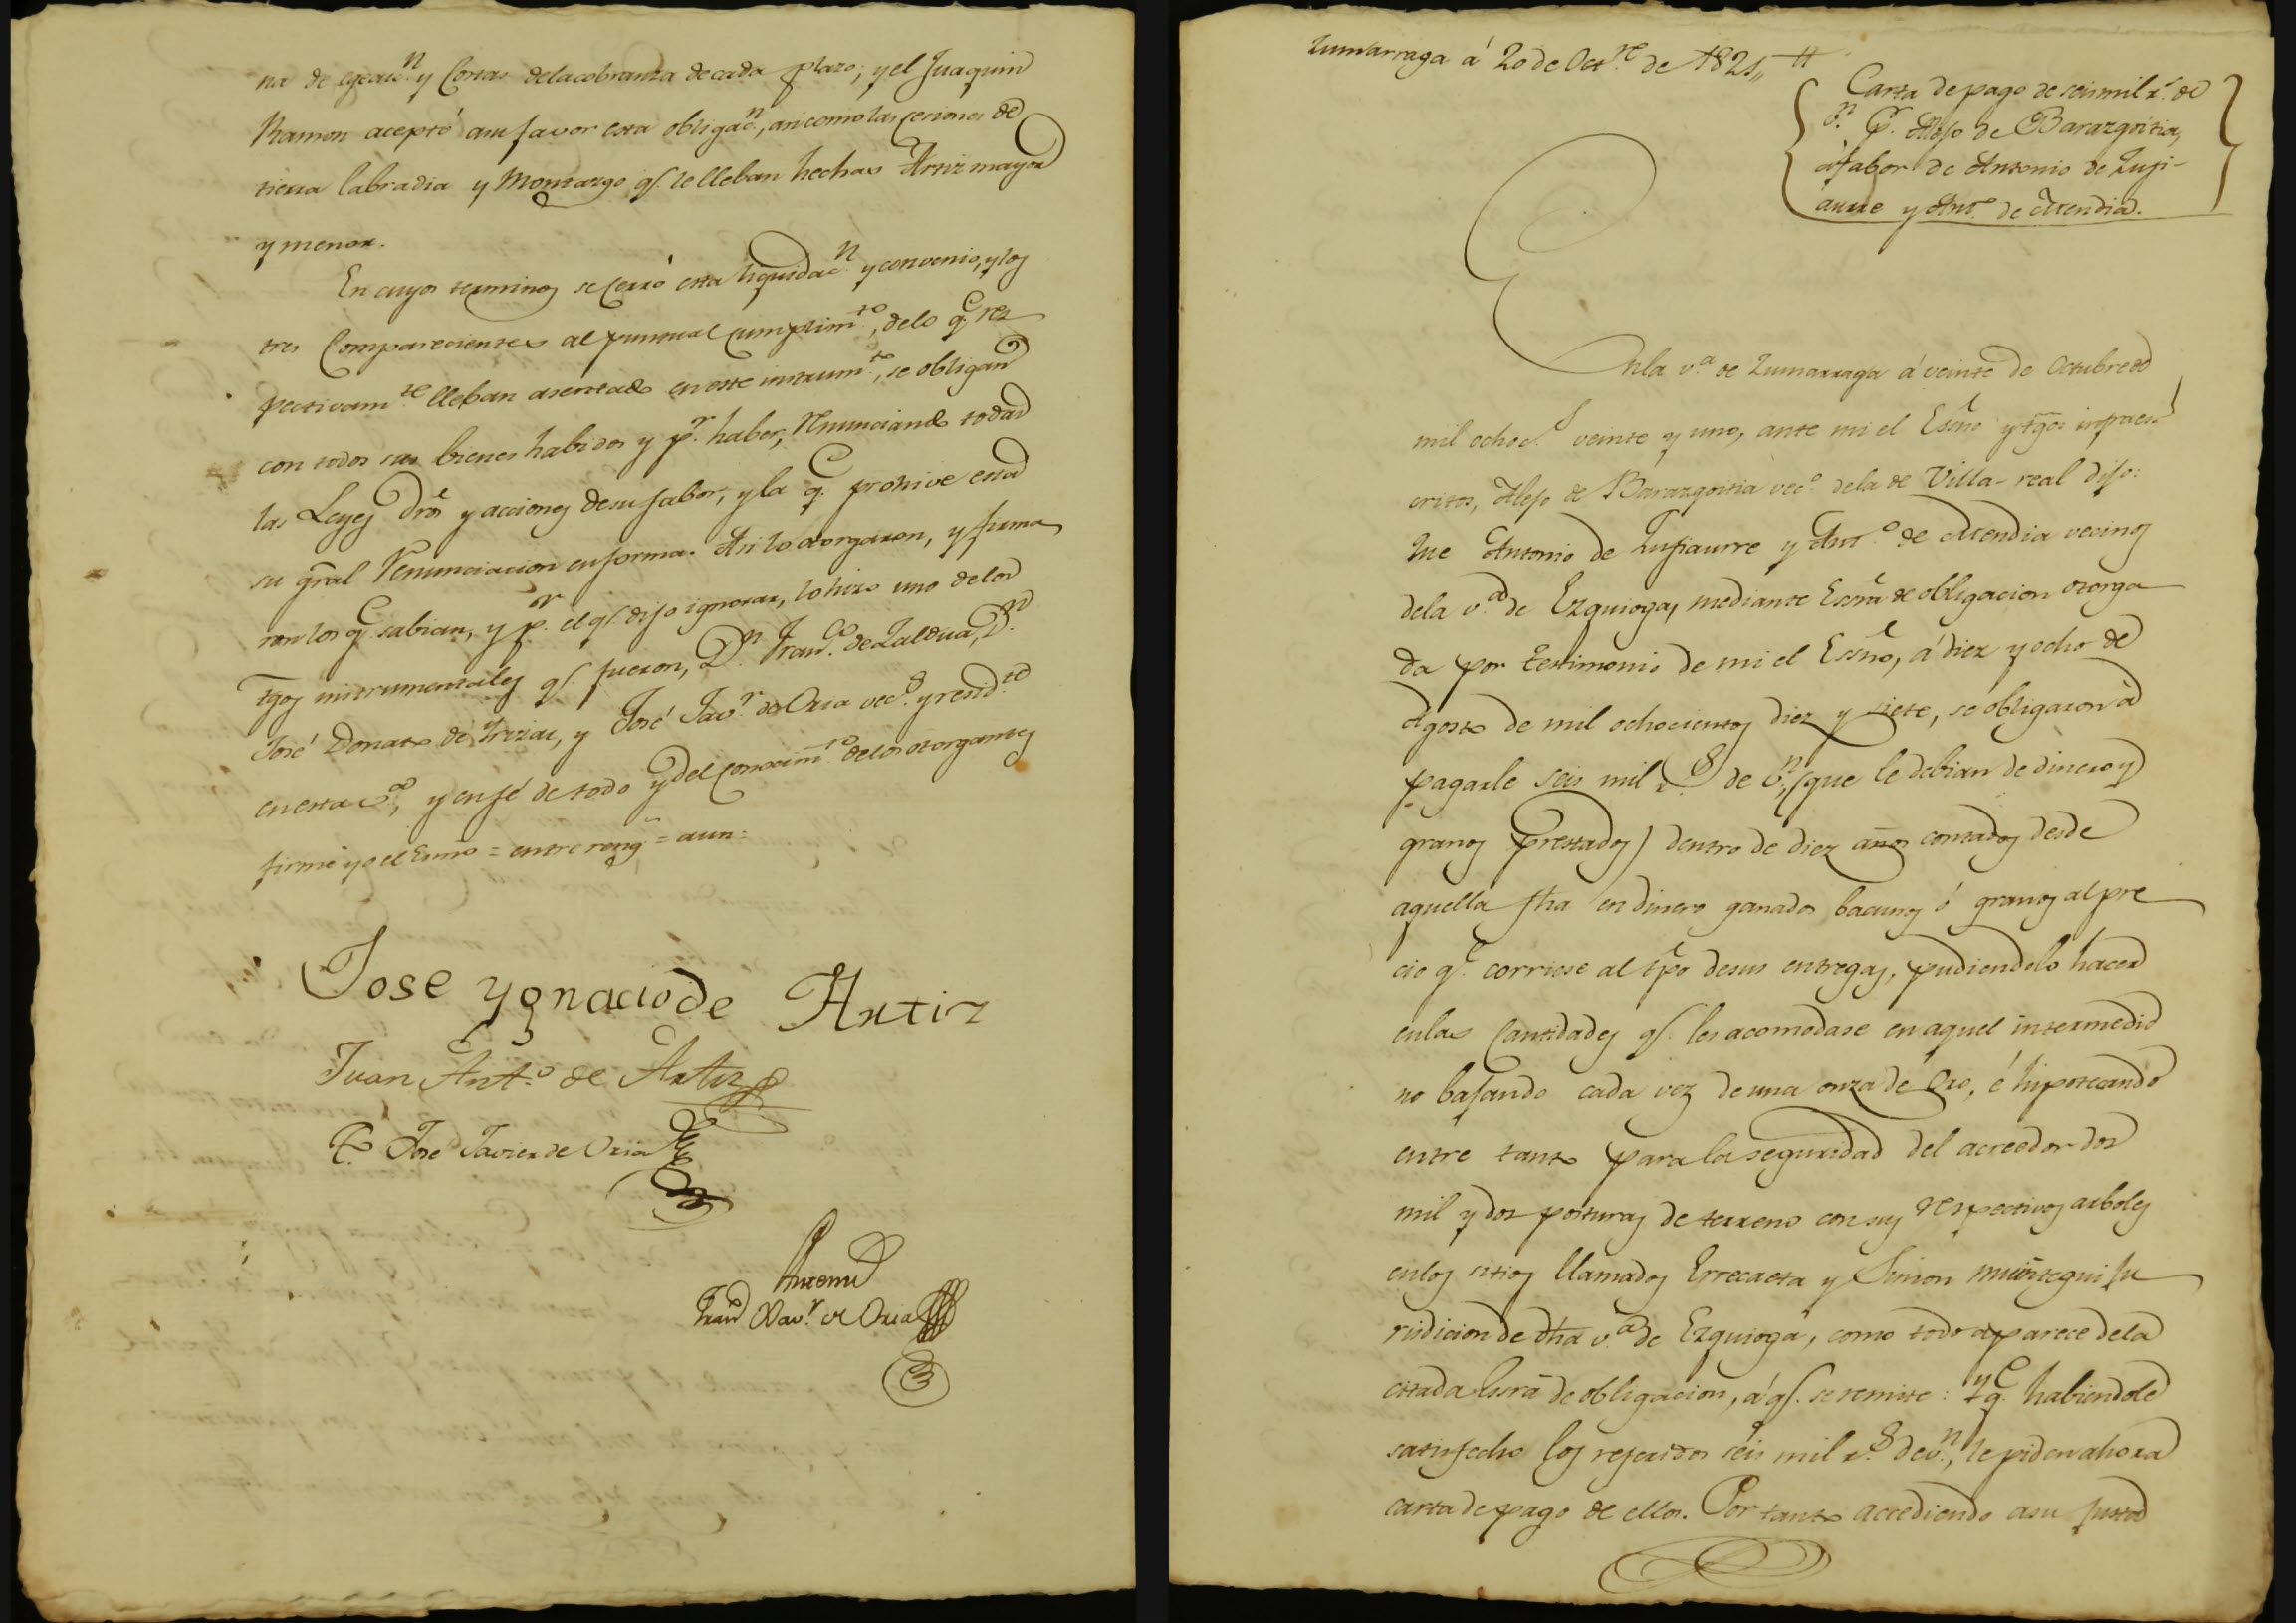 na de egecuc.n y Costas dela cobranza de cada plazo; y el Juaquin
Ramon aceptó asu favor esta obligac.n, asi como las cesiones de
tierra labradia y Montazgo q.e le lleban hechas Artiz mayor
y menor.
En cuyos terminos se cerró esta liquidac.n y convenio, y los
tres Comparecientes al puntual cumplim.to, delo q.e res
pectivam.te lleban asentado en este instrum.to, se obligan
con todos sus bienes habidos y p.r haber, renunciando todas
las Leyes dros y acciones desu fabor, y la q.e prohive esta
su gral renunciacion en forma. Asi lo otorgaron, y firma
ron los q.e sabian, y p.r el q.e dijo ignorar, lo hizo uno delos
tgos instrumentales q.e fueron, D.n Fran.co de Zaldua, D.n
José Donato de Irizar, y José Jav.r de Oria vec.s y resid.te
en esta v.a, y en fé de todo y del conocim.to delos otorgantes
firmé yo el Esnno = entre reng.s = aun:
Jose Ygnacio de Artiz
Juan Ant.o de Artiz
T.o José Javier de Oria
Antemi
Fran.co Xav.r de Oria
Zumarraga á 20 de Oct.re de 1821,,
Carta de pago de seis mil r.s de
v.n p.r Alejo de Barazgoitia,
á fabor de Antonio de Zufi-
aurre y Ant.o de Mendia.
Enla v.a de Zumarraga á veinte de Octubre de
mil ochoc.s veinte y uno, ante mi el Essno y tgos infraes
critos, Alejo de Barazgoitia vec.o dela de Villa-real dijo:
Que Antonio de Zufiaurre y Ant.o de Mendia vecinos
dela v.a de Ezquioga, mediante Essra de obligacion otorga
da por testimonio de mi el Essno, á diez y ocho de
Agosto de mil ochocientos diez y siete, se obligaron á
pagarle seis mil r.s de v.n, (que le debian de dinero y
granos prestados) dentro de diez años contados desde
aquella fha en dinero ganados bacunos ó granos al pre
cio q.e corriese al tpo desus entregas, pudiendolo hacer
enlas Cantidades q.e les acomodase en aquel intermedio
no bajando cada vez de una onza de Oro, é hipotecando
entre tanto para la seguridad del acreedor dos
mil y dos posturas de terreno con sus respectivos arboles
enlos sitios llamados Errecaeta y Simon muñategui ju
risdicion de dha v.a de Ezquioga, como todo aparece dela
citada Essra de obligacion, á q.e se remite: y q.e habiendole
satisfecho los referidos seis mil r.s de v.n, le piden ahora
carta de pago de ellos. Por tanto accediendo asu justa